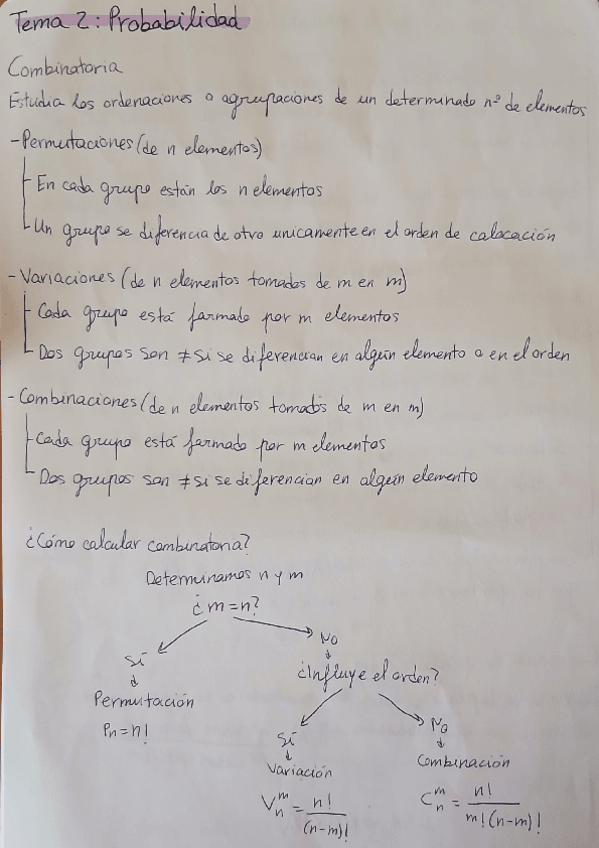 Tema 2: Probabilidad
Combinatoria
Estudia los ordenaciones o agrupaciones de un determinado nº de elementos
- Permutaciones (de n elementos)
En cada grupo están los n elementos
Un grupo se diferencia de otro unicamente en el orden de colocación
- Variaciones (de n elementos tomados de m en m)
Cada grupo está formado por m elementos
Dos grupos son ≠ si se diferencian en algún elemento o en el orden
- Combinaciones (de n elementos tomados de m en m)
Cada grupo está formado por m elementos
Dos grupos son ≠ si se diferencian en algún elemento
¿Cómo calcular combinatoria?
Determinamos n y m
¿m=n?
Sí
No
Permutación
Pn = n!
¿Influye el orden?
Sí
No
Variación
Combinación
V_n^m = n! / (n-m)!
C_n^m = n! / m!(n-m)!